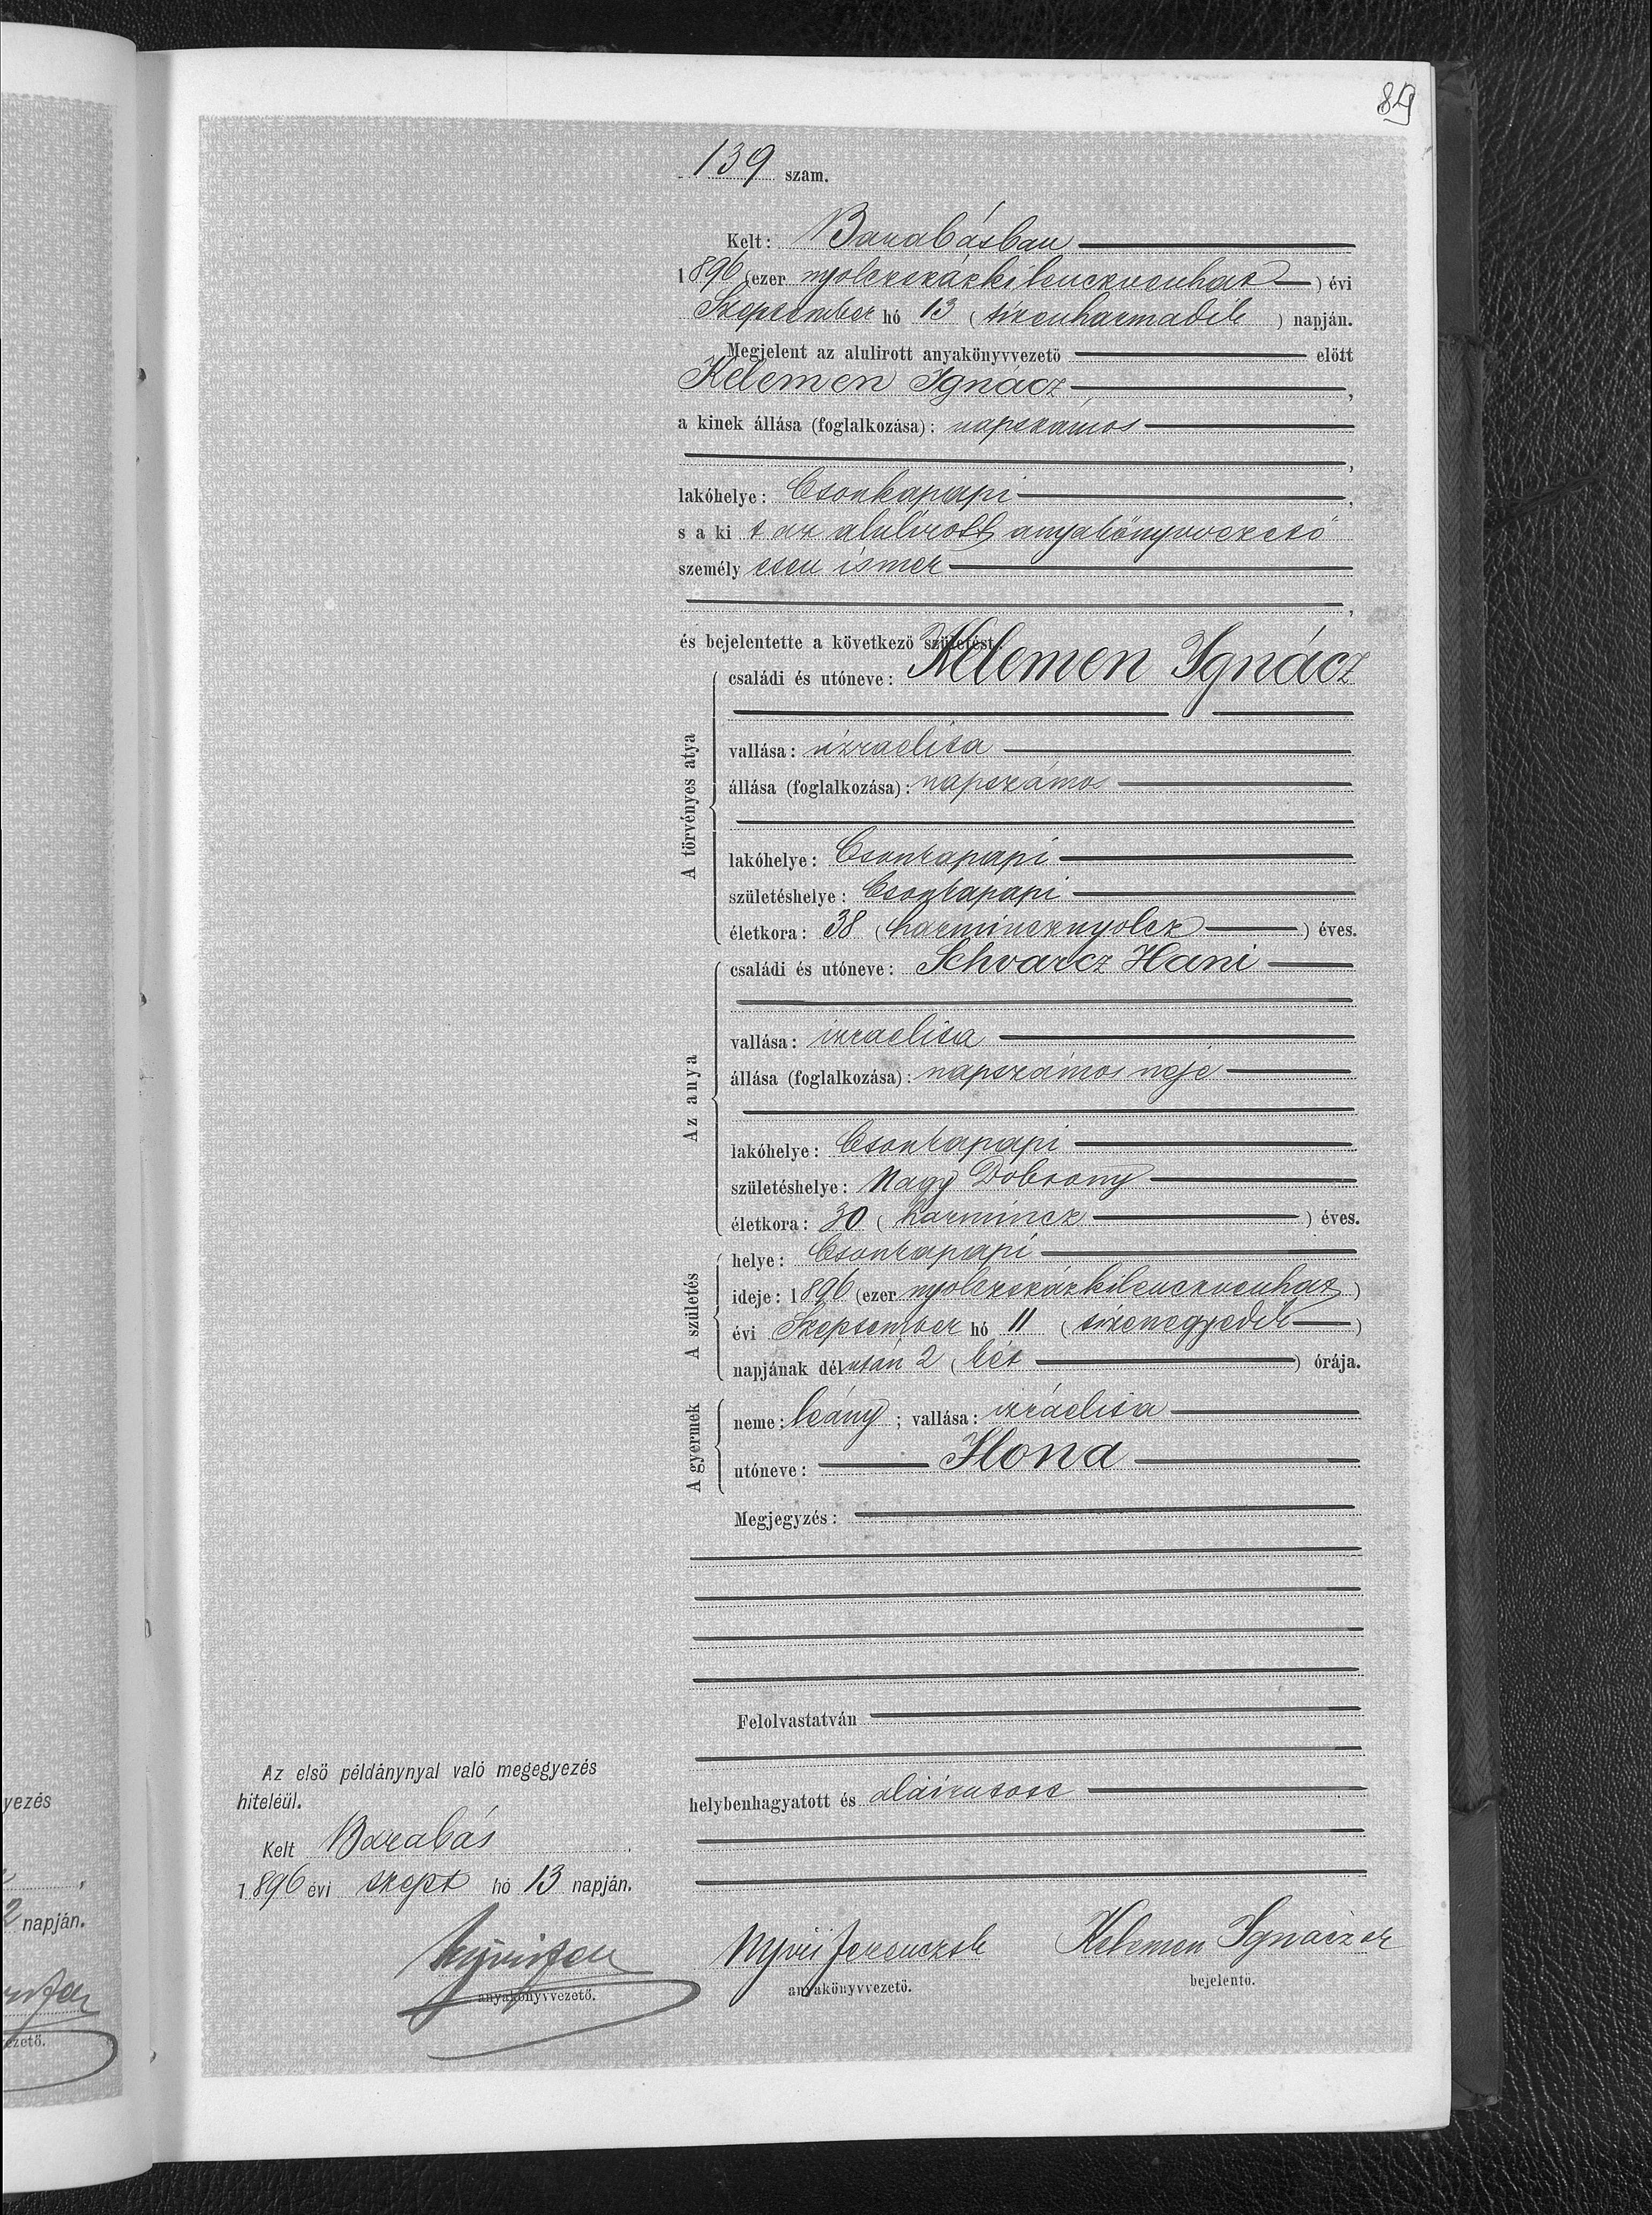 89
139 szám.
Kelt: Barabásban
1896 (ezer nyolczszázkilenczvenhat) évi
Szeptember hó 13 (tizenharmadik) napján.
Megjelent az alulirott anyakönyvvezető előtt
Kelemen Ignácz,
a kinek állása (foglalkozása): napszámos
,
lakóhelye: Csonkapapi,
s a ki t az alulírott anyakönyvvezető
személy esen ismer
,
és bejelentette a következő születést:
A törvényes atya
családi és utóneve: Kelemen Ignácz
vallása: izraelita
állása (foglalkozása): napszámos
lakóhelye: Csonkapapi
születéshelye: Csonkapapi
életkora: 38 (harmincznyolcz) éves.
Az anya
családi és utóneve: Schvarcz Hani
vallása: izraelita
állása (foglalkozása): napszámos neje
lakóhelye: Csonkapapi
születéshelye: Nagy Dobrony
életkora: 30 (harmincz) éves.
A születés
helye: Csonkapapi
ideje: 1896 (ezer nyolczszázkilenczvenhat)
évi Szeptember hó 11 (tizenegyedik)
napjának délután 2 (két) órája.
A gyermek
neme: leány; vallása: izráelita
utóneve: Ilona
Megjegyzés:
Felolvastatván
helybenhagyatott és aláiratott
Az első példánynyal való megegyezés
hiteléül.
Kelt Barabás.
1896 évi szept hó 13 napján.
anyakönyvvezető.
Ferenczsk
anyakönyvvezető.
Kelemen Ignácz sk
bejelentő.
yezés
,
2 napján.
ezető.